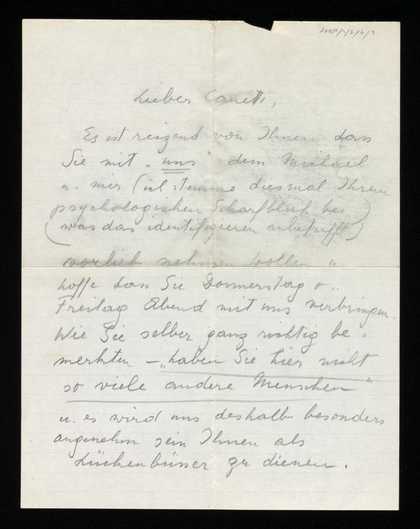 Lieber Canetti,
Es ist reizend von Ihnen dass
Sie mit „uns" dem Michael
u. mir (ich stimme diesmal Ihrem
psychologischen Scharfblick bei
was das identifizieren anbetrifft)
vorlieb nehmen wollen u.
hoffe dass Sie Donnerstag o.
Freitag Abend mit uns verbringen.
Wie Sie selber ganz richtig be-
merkten – „haben Sie hier nicht
so viele andere Menschen"
u. es wird uns deshalb besonders
angenehm sein Ihnen als
Lückenbüsser zu dienen.